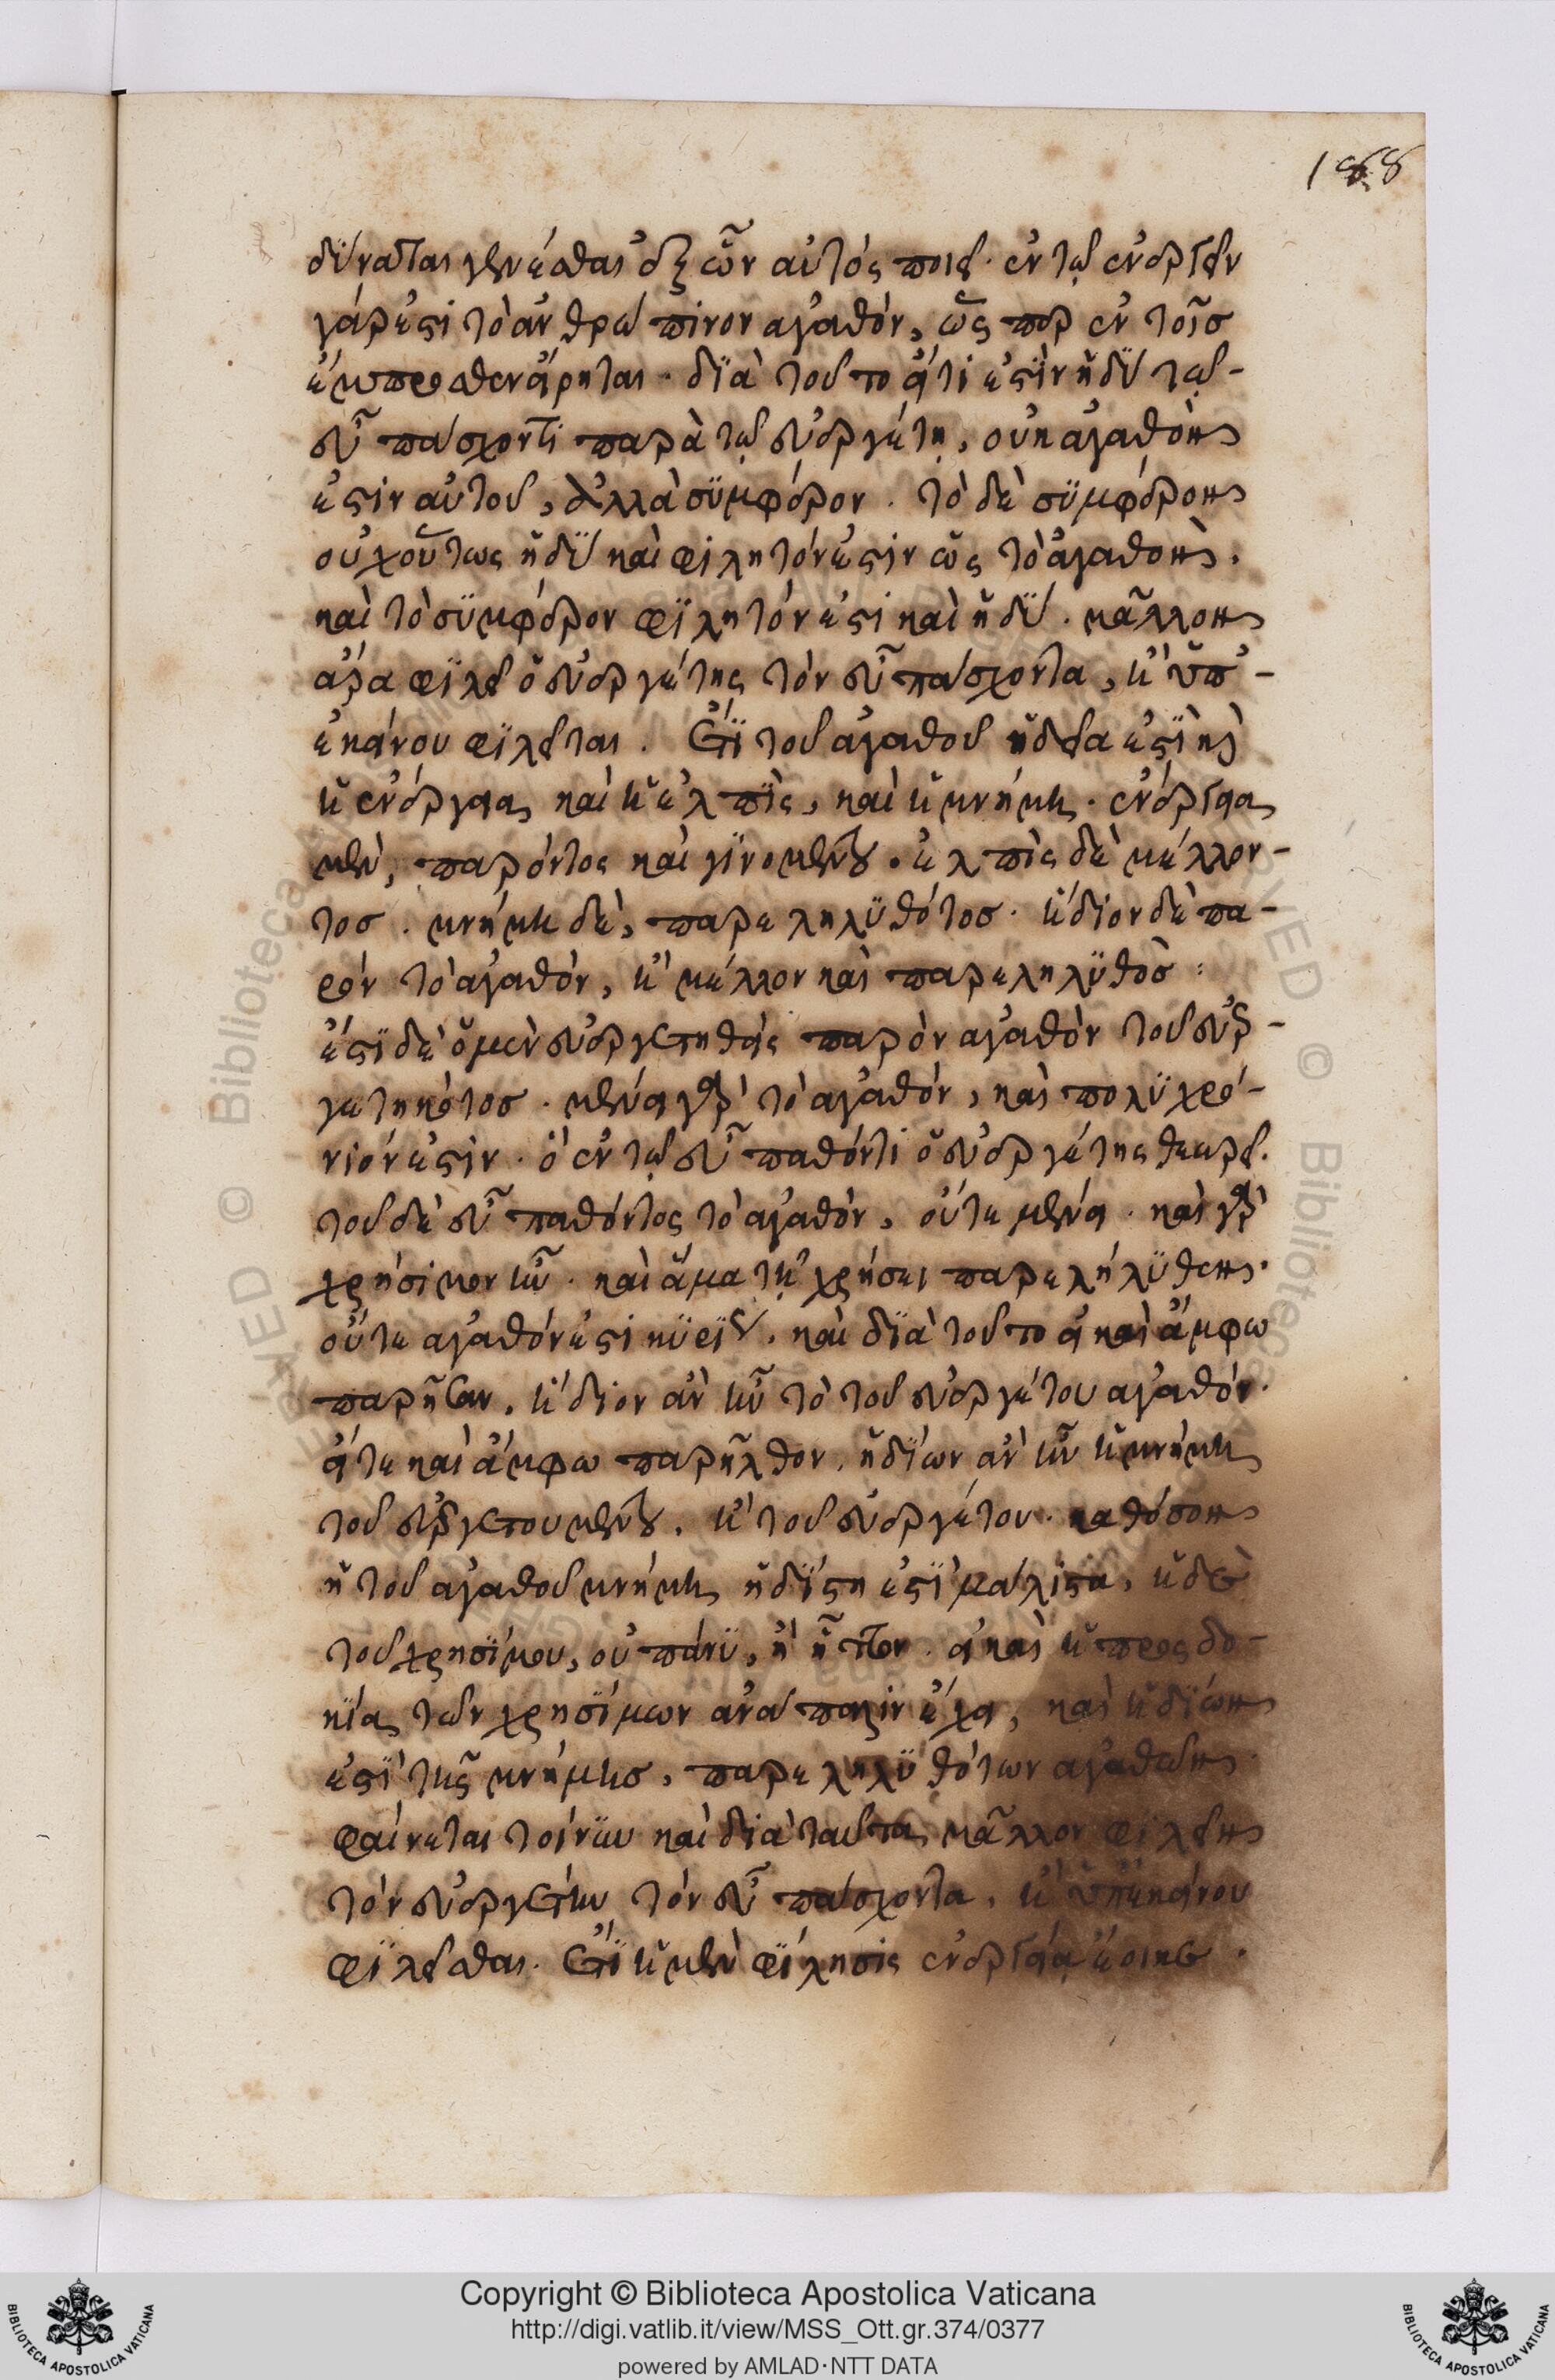 188
δύναται γενέσθαι ἐξ ὧν αὐτός ποιεῖ. ἐν τῷ ἐνεργεῖν
γάρ ἐστι τὸ ἀνθρώπινον ἀγαθόν, ὥς περ ἐν τοῖσ
ἔμπροσθεν εἴρηται. διὰ τοῦτο εἴ τι ἐστὶν ἡδὺ τῷ-
εὖ πάσχοντι παρὰ τῷ εὐεργέτῃ, οὐκ ἀγαθὸν
ἐστιν αὐτοῦ, ἀλλὰ συμφέρον. τὸ δὲ συμφέρον
οὐχ οὕτως ἡδὺ καὶ φιλητόν ἐστιν ὡς τὸ ἀγαθὸν.
καὶ τὸ συμφέρον φιλητόν ἐστι καὶ ἡδύ. μᾶλλον
ἄρα φιλεῖ ὁ εὐεργέτης τὸν εὖ πάσχοντα, ἢ ὑπ'-
ἐκείνου φιλεῖται. Ἔτι τοῦ ἀγαθοῦ ἡδεῖα ἐστὶ καὶ
ἡ ἐνέργεια καὶ ἡ ἐλπὶς, καὶ ἡ μνήμη. ἐνέργεια
μὲν, παρόντος καὶ γινομένου. ἐλπὶς δὲ μέλλον-
τοσ. μνήμη δὲ, παρεληλυθότοσ. ἥδιον δὲ πα-
ρὸν τὸ ἀγαθὸν, ἢ μέλλον καὶ παρεληλυθὸσ:
ἔστι δὲ ὁ μὲν εὐεργετηθεὶς παρὸν ἀγαθὸν τοῦ εὐερ-
γετηκότοσ. μένει γὰρ τὸ ἀγαθόν, καὶ πολυχρό-
νιόν ἐστιν. ὃ ἐν τῷ εὖ παθόντι ὁ εὐεργέτης θεωρεῖ.
τοῦ δὲ εὖ παθόντος τὸ ἀγαθὸν, οὔτε μένει. καὶ γὰρ
χρήσιμον ἦν. καὶ ἅμα τῇ χρήσει παρελήλυθεν.
οὔτε ἀγαθόν ἐστι κυρίως. καὶ διὰ τοῦτο εἰ καὶ ἄμφω
παρῆσαν, ἥδιον ἂν ἦν τὸ τοῦ εὐεργέτου ἀγαθόν.
εἴτε καὶ ἄμφω παρῆλθον, ἡδίων ἂν ἦν ἡ μνήμη
τοῦ εὐεργετουμένου, ἢ τοῦ εὐεργέτου. καθόσον
ἡ τοῦ ἀγαθοῦ μνήμη ἡδίστη ἐστὶ μάλιστα, ἡ δὲ
τοῦ χρησίμου, οὐ πάνυ, ἢ ἧττον. εἰ καὶ ἡ προσδο-
κία τῶν χρησίμων ἀνάπαλιν ἔχει, καὶ ἡδίων
ἐστὶ τῆς μνήμησ, παρεληλυθότων ἀγαθῶν.
φαίνεται τοίνυν καὶ διὰ ταῦτα μᾶλλον φιλεῖν
τὸν εὐεργέτην τὸν εὖ πάσχοντα, ἢ ὑπ' ἐκείνου
φιλεῖσθαι. Ἔτι ἡ μὲν φίλησις ἐνεργείᾳ ἔοικε.
Copyright © Biblioteca Apostolica Vaticana
http://digi.vatlib.it/view/MSS_Ott.gr.374/0377
powered by AMLAD·NTT DATA
BIBLIOTECA APOSTOLICA VATICANA
BIBLIOTECA APOSTOLICA VATICANA